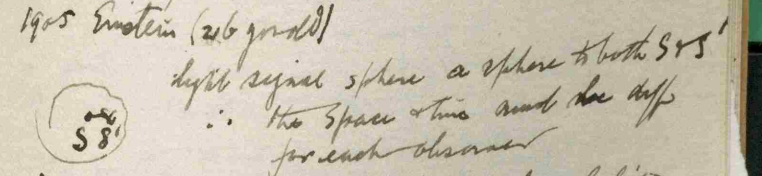 1905 Einstein (26 years old)
light signal sphere a sphere to both S & S'
∴ the space & time must be diff
for each observer
S S'